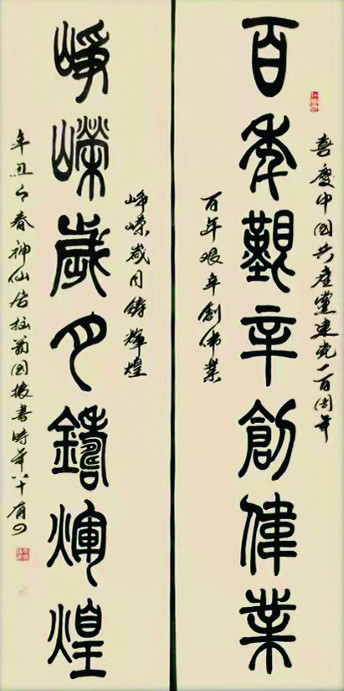 喜慶中国共產黨建党一百周年
百年艱辛創偉業
百年艰辛創伟業
崢嶸歲月鑄輝煌
崢嶸歲月鑄煇煌
辛丑之春神仙居拙国振書時年八十有四